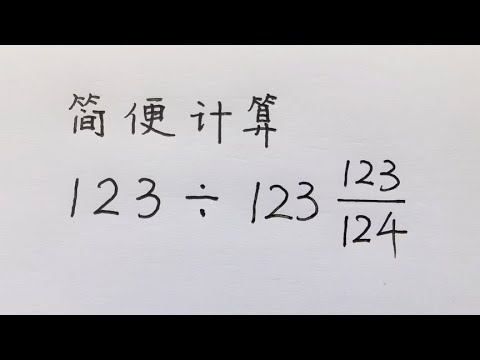 简便计算
123 ÷ 123 123/124